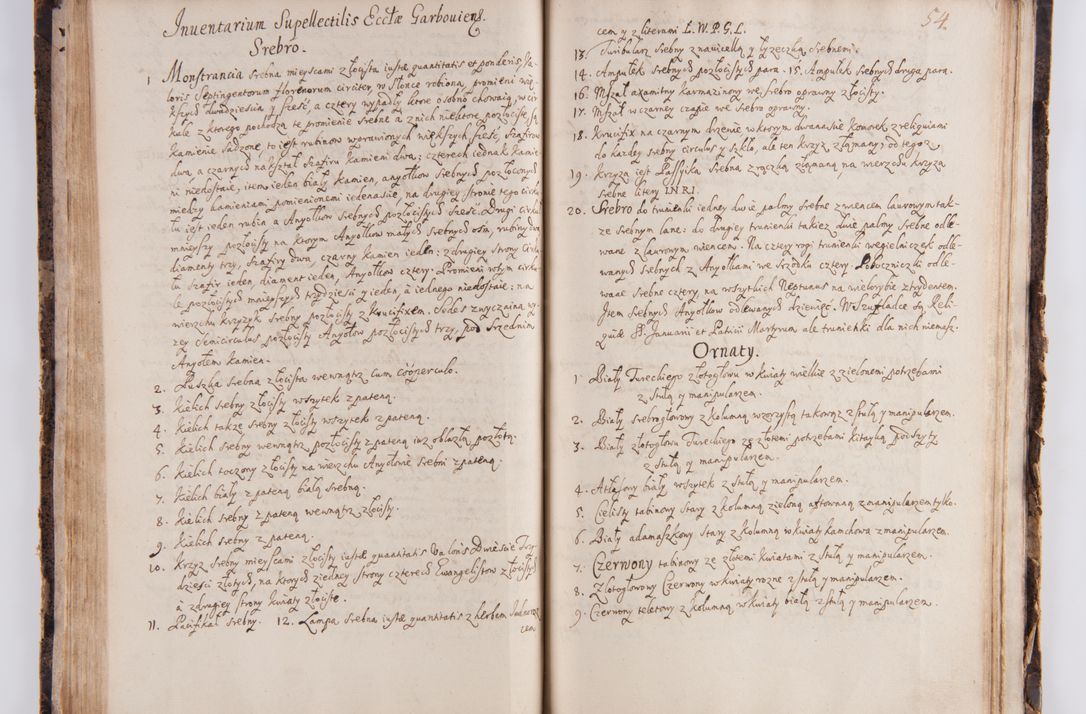 Inuentarium Supellectilis Eccłæ Garbouiens.
Srebro.
1 Monstrancia srebna mieyscami złocista iustæ quantitatis et ponderis, Va-
loris Septingentorum florenorum circiter, w słonce robiona, promieni więk-
szych dwadziescia y sześć, a cztery wypadły ktore osobno chowaią, w cir-
kule z ktorego pochodzą te promienie srebne a znich niektore pozłociste, są
kamienie sadzone, to iest rubinow wprawionych większych sześć, szafirow
dwa, a czarnych nakształ szafiru kamieni dwa, czterech iednak kamie-
ni niedostaie, item ieden biały kamien, anyołkow srebnych pozłoconych
między kamieniami pomienionemi iedenascie, na drugiey stronie tego cirku-
łu iest ieden rubin a Anyołkow srebnych pozłocistych sześć. Drugi cirkuł
mnieyszy pozłocisty na ktorym Anyołkow małych srebnych osm, rubiny dwa
diamenty trzy, szafiry dwa, czarny kamien ieden: z drugiey strony cirku-
łu szafir ieden, diament ieden, Anyołkow cztery. Promieni wtym cirku-
le pozłocistych mnieyszych trzydziesci y ieden, a iednego niedostaie: na
wierzchu krzyżyk srebny pozłocisty z Krucifixem. Sedes zwyczaina w-
rzey Semicirculus pozłocisty Anyołow pozłocistych trzy, pod Srzednim
Anyołem kamien.
2. Puszka srebna złocista wewnątrz cum coöperculo.
3. Kielich srebny złocisty wszytek z pateną.
4. Kielich także srebny złocisty wszytek z pateną.
5. Kielich srebny wewnątrz pozłocisty z pateną iuż oblazłą pozłotą.
6. Kielich toczony złocisty na wierzchu Anyołowie srebni z pateną.
7. Kielich biały z pateną białą srebną.
8. Kielich srebny z pateną wewnątrz złocisty.
9. Kielich srebny z pateną.
10. Krzyż srebny mieyscami złocisty iustæ quantitatis Valoris Dwiescie Trzy-
dziesci złotych, na ktorych z iedney strony czterech Ewangelistow złocistych
a z drugiey strony kwiaty złociste.
11. Pacifikał srebny. 12. Lampa srebna iustæ quantitatis z herbem
cem
54
cem y z literami L. W. P. G. L.
13. Turibularz srebny z nauicellą y łyżeczką srebnemi.
14. Ampułek srebnych pozłocistych para. 15. Ampułek srebnych druga para.
16. Mszał axamitny karmazinowy we srebro oprawny złocisty.
17. Mszał w czarney czapie we srebro oprawny.
18. Krucifix na czarnym drzewie w ktorym dwanascie komorek z reliquiami
do kazdey srebny circulus y szkło, ale ten krzyż złamany: od tego ż
19. krzyża iest Passyika srebna z rączką złamaną na wierzchu krzyża
srebne litery I.N.R.I.
20. Srebro do trunienki iedney dwie palmy srebne z wiencem laurowym tak-
ze srebnym lane: do drugiey trunienki takiez dwie palmy srebne odle-
wane z laurowym wiencem. Na cztery rogi trunienki węgielniczek odle-
wanych srebnych z Anyołkami we srzodku cztery. Poboczniczki odle-
wane srebne cztery, na wszytkich Neptunus na wielorybie z trydentem.
Item srebnych Anyołkow odlewanych dziewięć. W szufladce są Reli-
quiæ SS. Januarii et Patricii Martyrum ale trunienki dla nich niemasz.
Ornaty.
1 Biały Tureckiego złotogłowu w kwiaty wielkie z zielonemi potrzebami
z stułą y manipularzem.
2. Biały srebrogłowy z kolumną wzorzystą takowąż z stułą y manipularzem.
3. Biały złotogłowu Tureckiego ze złotemi potrzebami kitayką podszyty
z stułą y manipularzem.
4. Atłasowy biały wszytek z stułą y manipularzem.
5. Cielisty tabinowy stary z kolumną zieloną astowaną z manipularzem tylko.
6. Biały adamaszkowy stary z kolumną w kwiaty kamchowa z manipularzem.
7. Czerwony tabinowy ze złotemi kwiatami z stułą y manipularzem.
8. Złotogłowy Czerwony w kwiaty rozne z stułą y manipularzem.
9. Czerwony teletowy z kolumną w kwiaty białą z stułą y manipularzem.